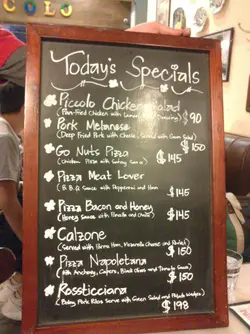 COLO
Today's Specials
Piccolo Chicken Salad
(Pan-Fried Chicken with Lemon Dressing) $90
Pork Melanese
(Deep Fried Pork with Cheese, Served with Green Salad) $150
Go Nuts Pizza
(Chicken Pizza with Satay Sauce) $145
Pizza Meat Lover
(B.B.Q Sauce with Pepperoni and Ham $145
Pizza Bacon and Honey
(Honey Sauce with Pineapple and Chilli) $145
Calzone
(Served with Parma Ham, Mozzarella Cheese and Rocket) $150
Pizza Napoletana
(with Anchovy, Capers, Black Olives and Tomato Sauce) $150
Rossticciana
(Baby Pork Ribs Serve with Green Salad and Potato Wedges) $198